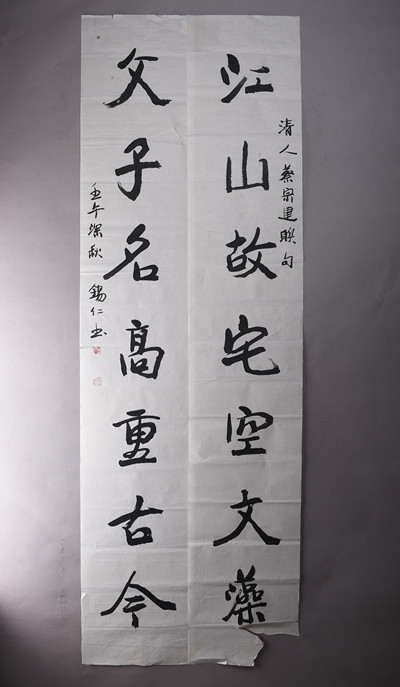 清人蔡宗建联句
江山故宅空文藻
父子名高重古今
壬午深秋 锡仁书